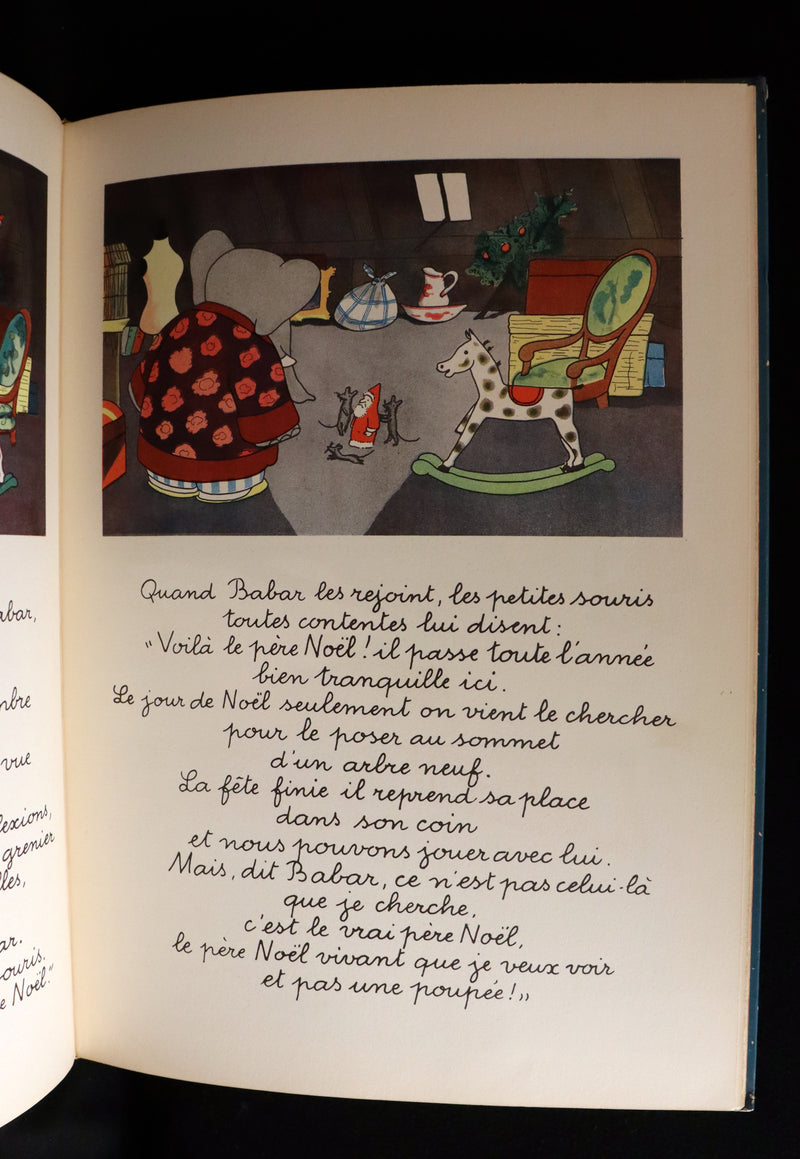 abar,
mbre
vue
lexions,
grenier
lles,
ar.
ouris.
e Noël."
Quand Babar les rejoint, les petites souris
toutes contentes lui disent :
"Voilà le père Noël ! il passe toute l'année
bien tranquille ici.
Le jour de Noël seulement on vient le chercher
pour le poser au sommet
d'un arbre neuf.
La fête finie il reprend sa place
dans son coin
et nous pouvons jouer avec lui.
Mais, dit Babar, ce n'est pas celui-là
que je cherche,
c'est le vrai père Noël,
le père Noël vivant que je veux voir
et pas une poupée !„